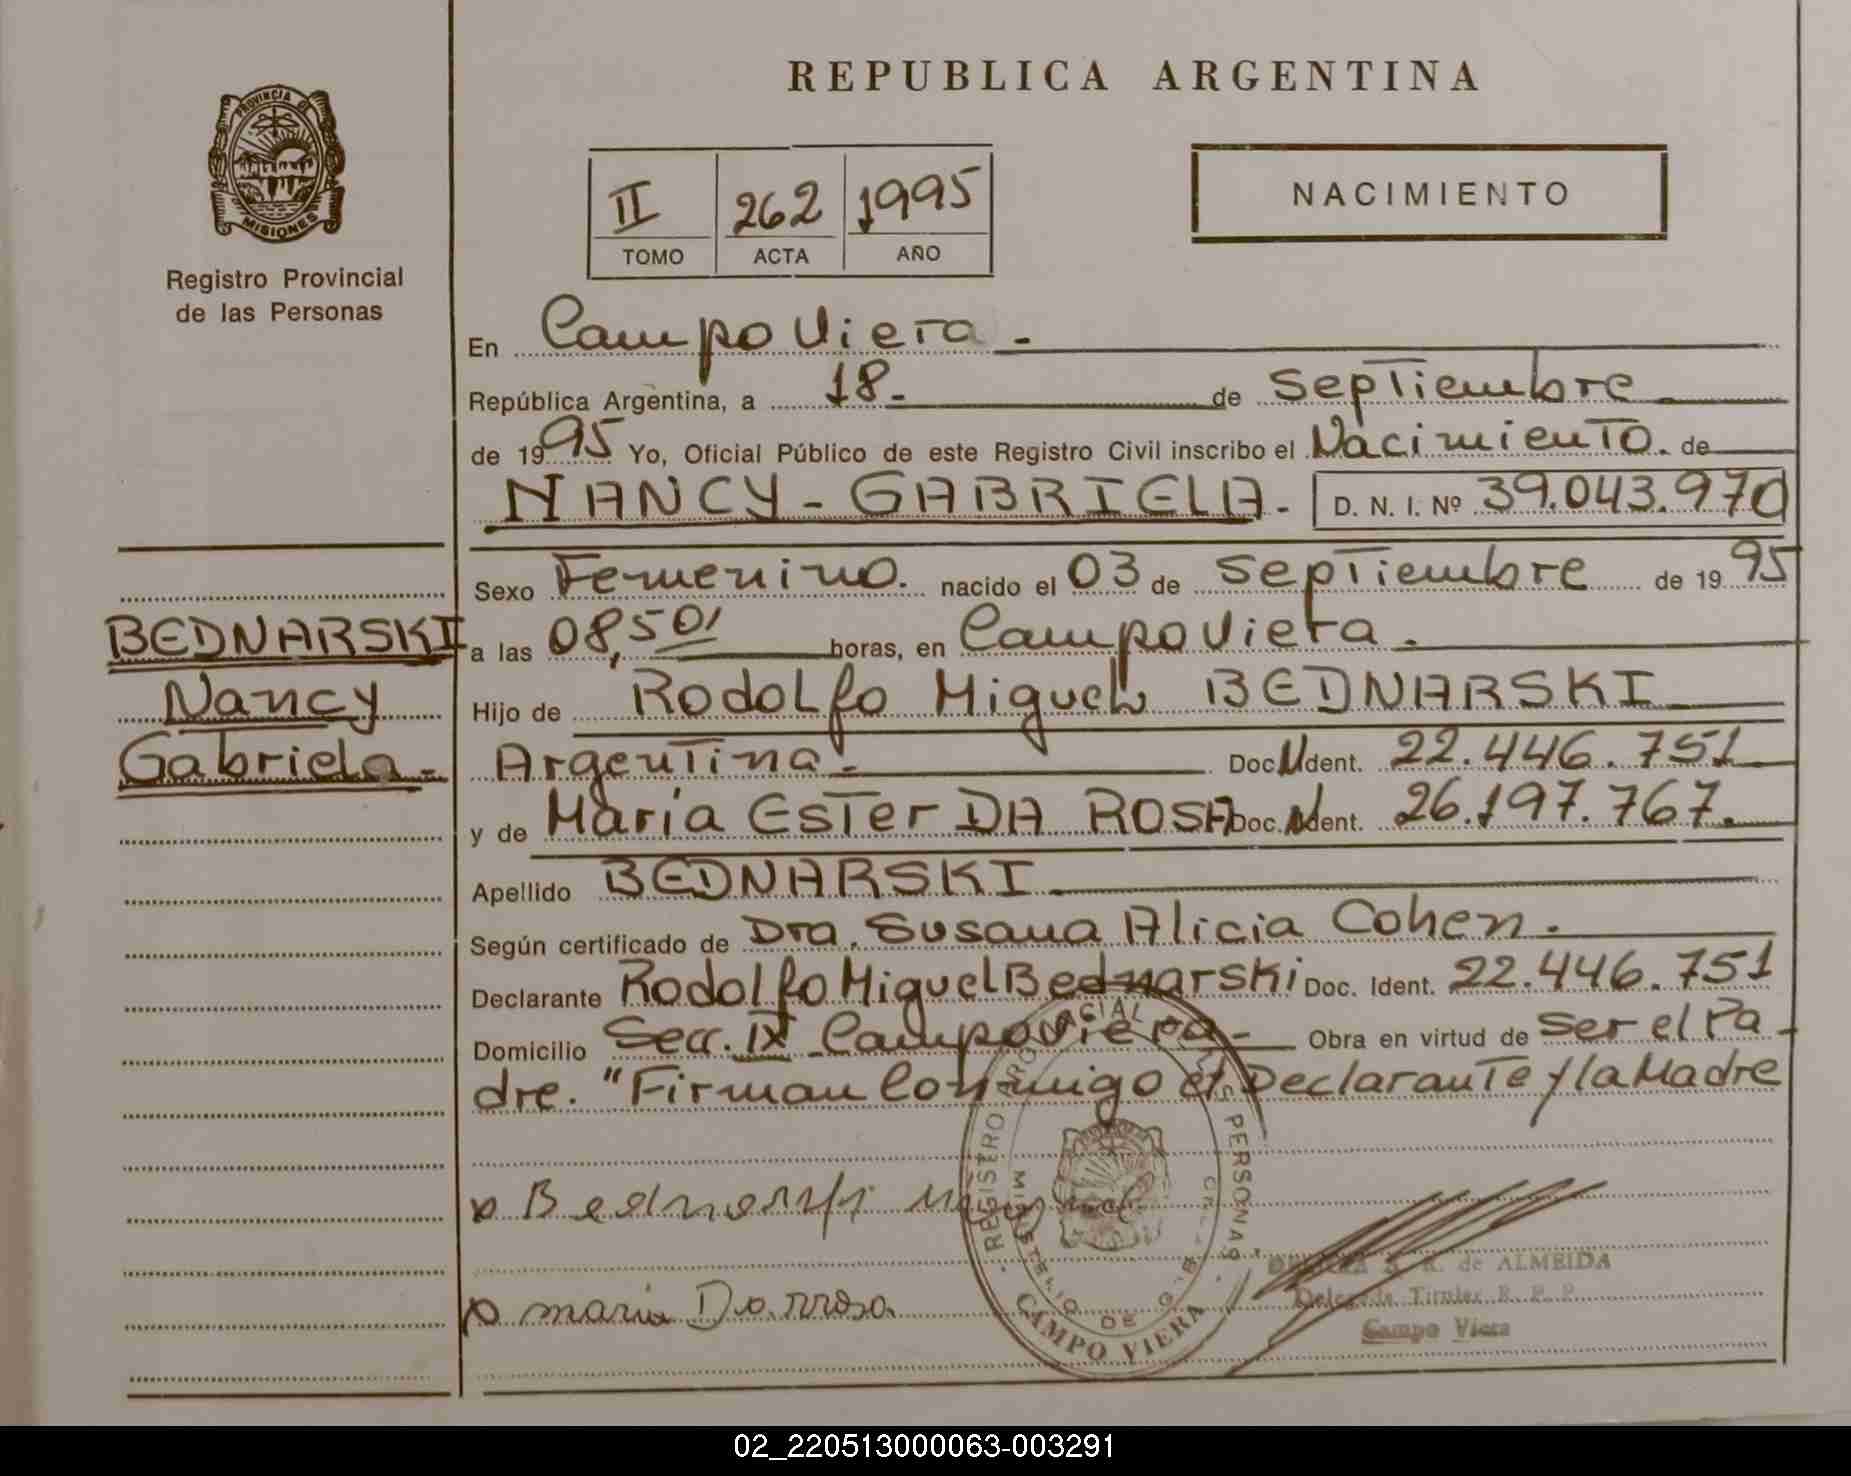 REPUBLICA ARGENTINA
PROVINCIA DE
MISIONES
Registro Provincial
de las Personas
II 262 1995
TOMO ACTA AÑO
NACIMIENTO
En Campo Viera.-
República Argentina, a 18.- de Septiembre
de 1995 Yo, Oficial Público de este Registro Civil inscribo el Nacimiento. de
NANCY - GABRIELA.- D. N. I. Nº 39.043.970
Sexo Femenino. nacido el 03 de Septiembre de 1995
BEDNARSKI
Nancy
Gabriela.-
a las 08,50 horas, en Campo Viera.
Hijo de Rodolfo Miguel BEDNARSKI
Argentina.- Doc. Ident. 22.446.751
y de María Ester DA ROSA Doc. Ident. 26.197.767.
Apellido BEDNARSKI
Según certificado de Dra. Susana Alicia Cohen.
Declarante Rodolfo Miguel Bednarski Doc. Ident. 22.446.751
Domicilio Secc. IX Campo Viera- Obra en virtud de Ser el Pa-
dre. "Firman Conmigo el Declarante y la Madre
x Bednarski Miguel
x maria Da rrosa
REGISTRO PROVINCIAL DE LAS PERSONAS
MINISTERIO DE
CAMPO VIERA
R. de ALMEIDA
Delegada Titular R. P. P.
Campo Viera
02_220513000063-003291